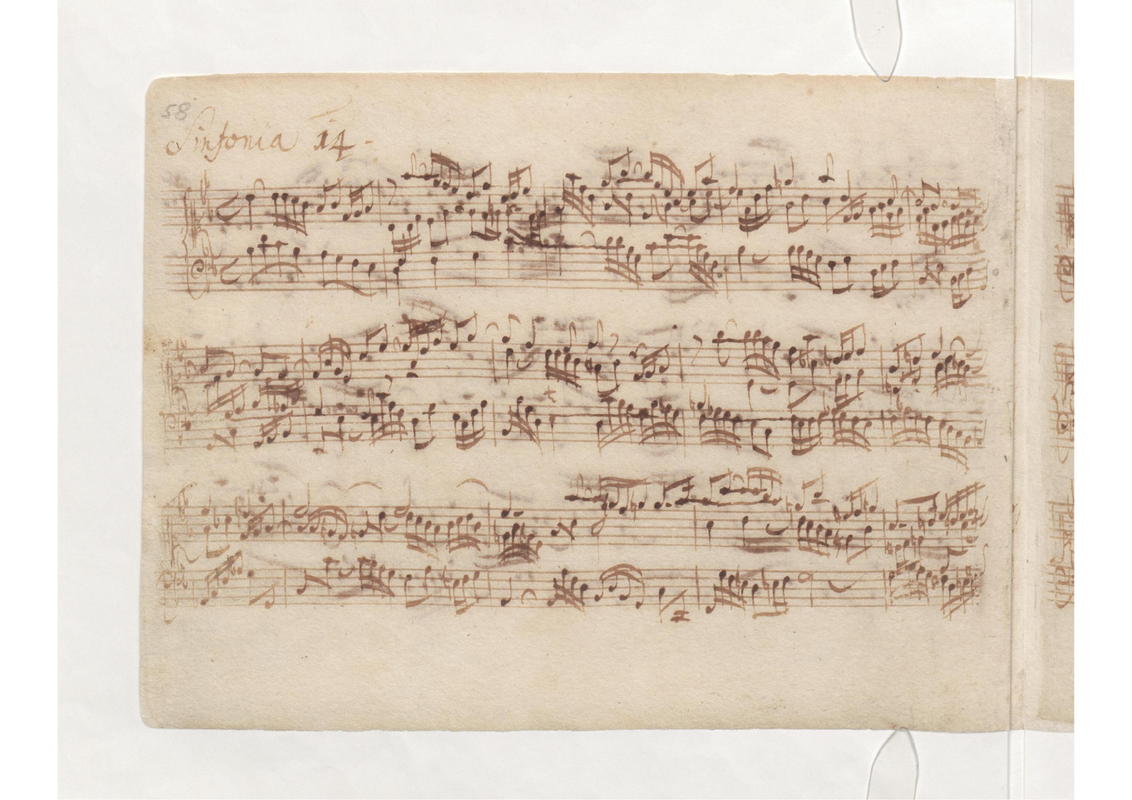 58
Sinfonia 14.